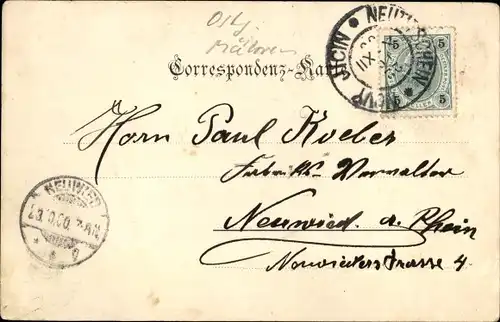 Mähren
Correspondenz-Karte
NEUTITSCHEIN * NOVÝ JIČÍN *
5 5
5 5
Herrn Paul Koeber
Fabriks-Verwalter
Neuwied a. Rhein
Neuwiederstrasse 4
NEUWIED